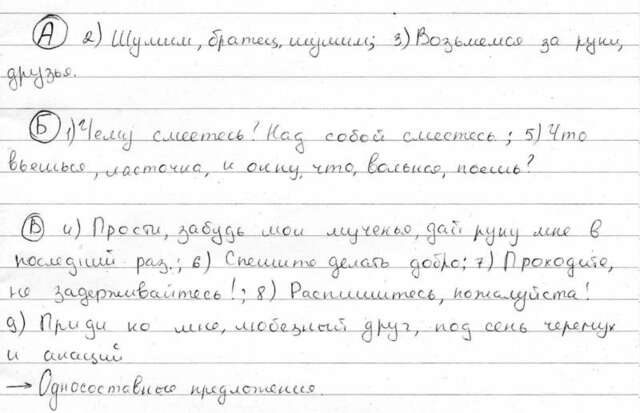 А 2) Шумим, братец, шумим; 3) Возьмемся за руки,
друзья.
Б 1) Чему смеетесь? Над собой смеетесь; 5) Что
вьешься, ласточка, к окну, что, вольная, поешь?
В 4) Прости, забудь мои мученья, дай руку мне в
последний раз.; 6) Спешите делать добро; 7) Проходите,
не задерживайтесь!; 8) Распишитесь, пожалуйста!
9) Приди ко мне, любезный друг, под сень черемух
и акаций
→ Односоставные предложения.